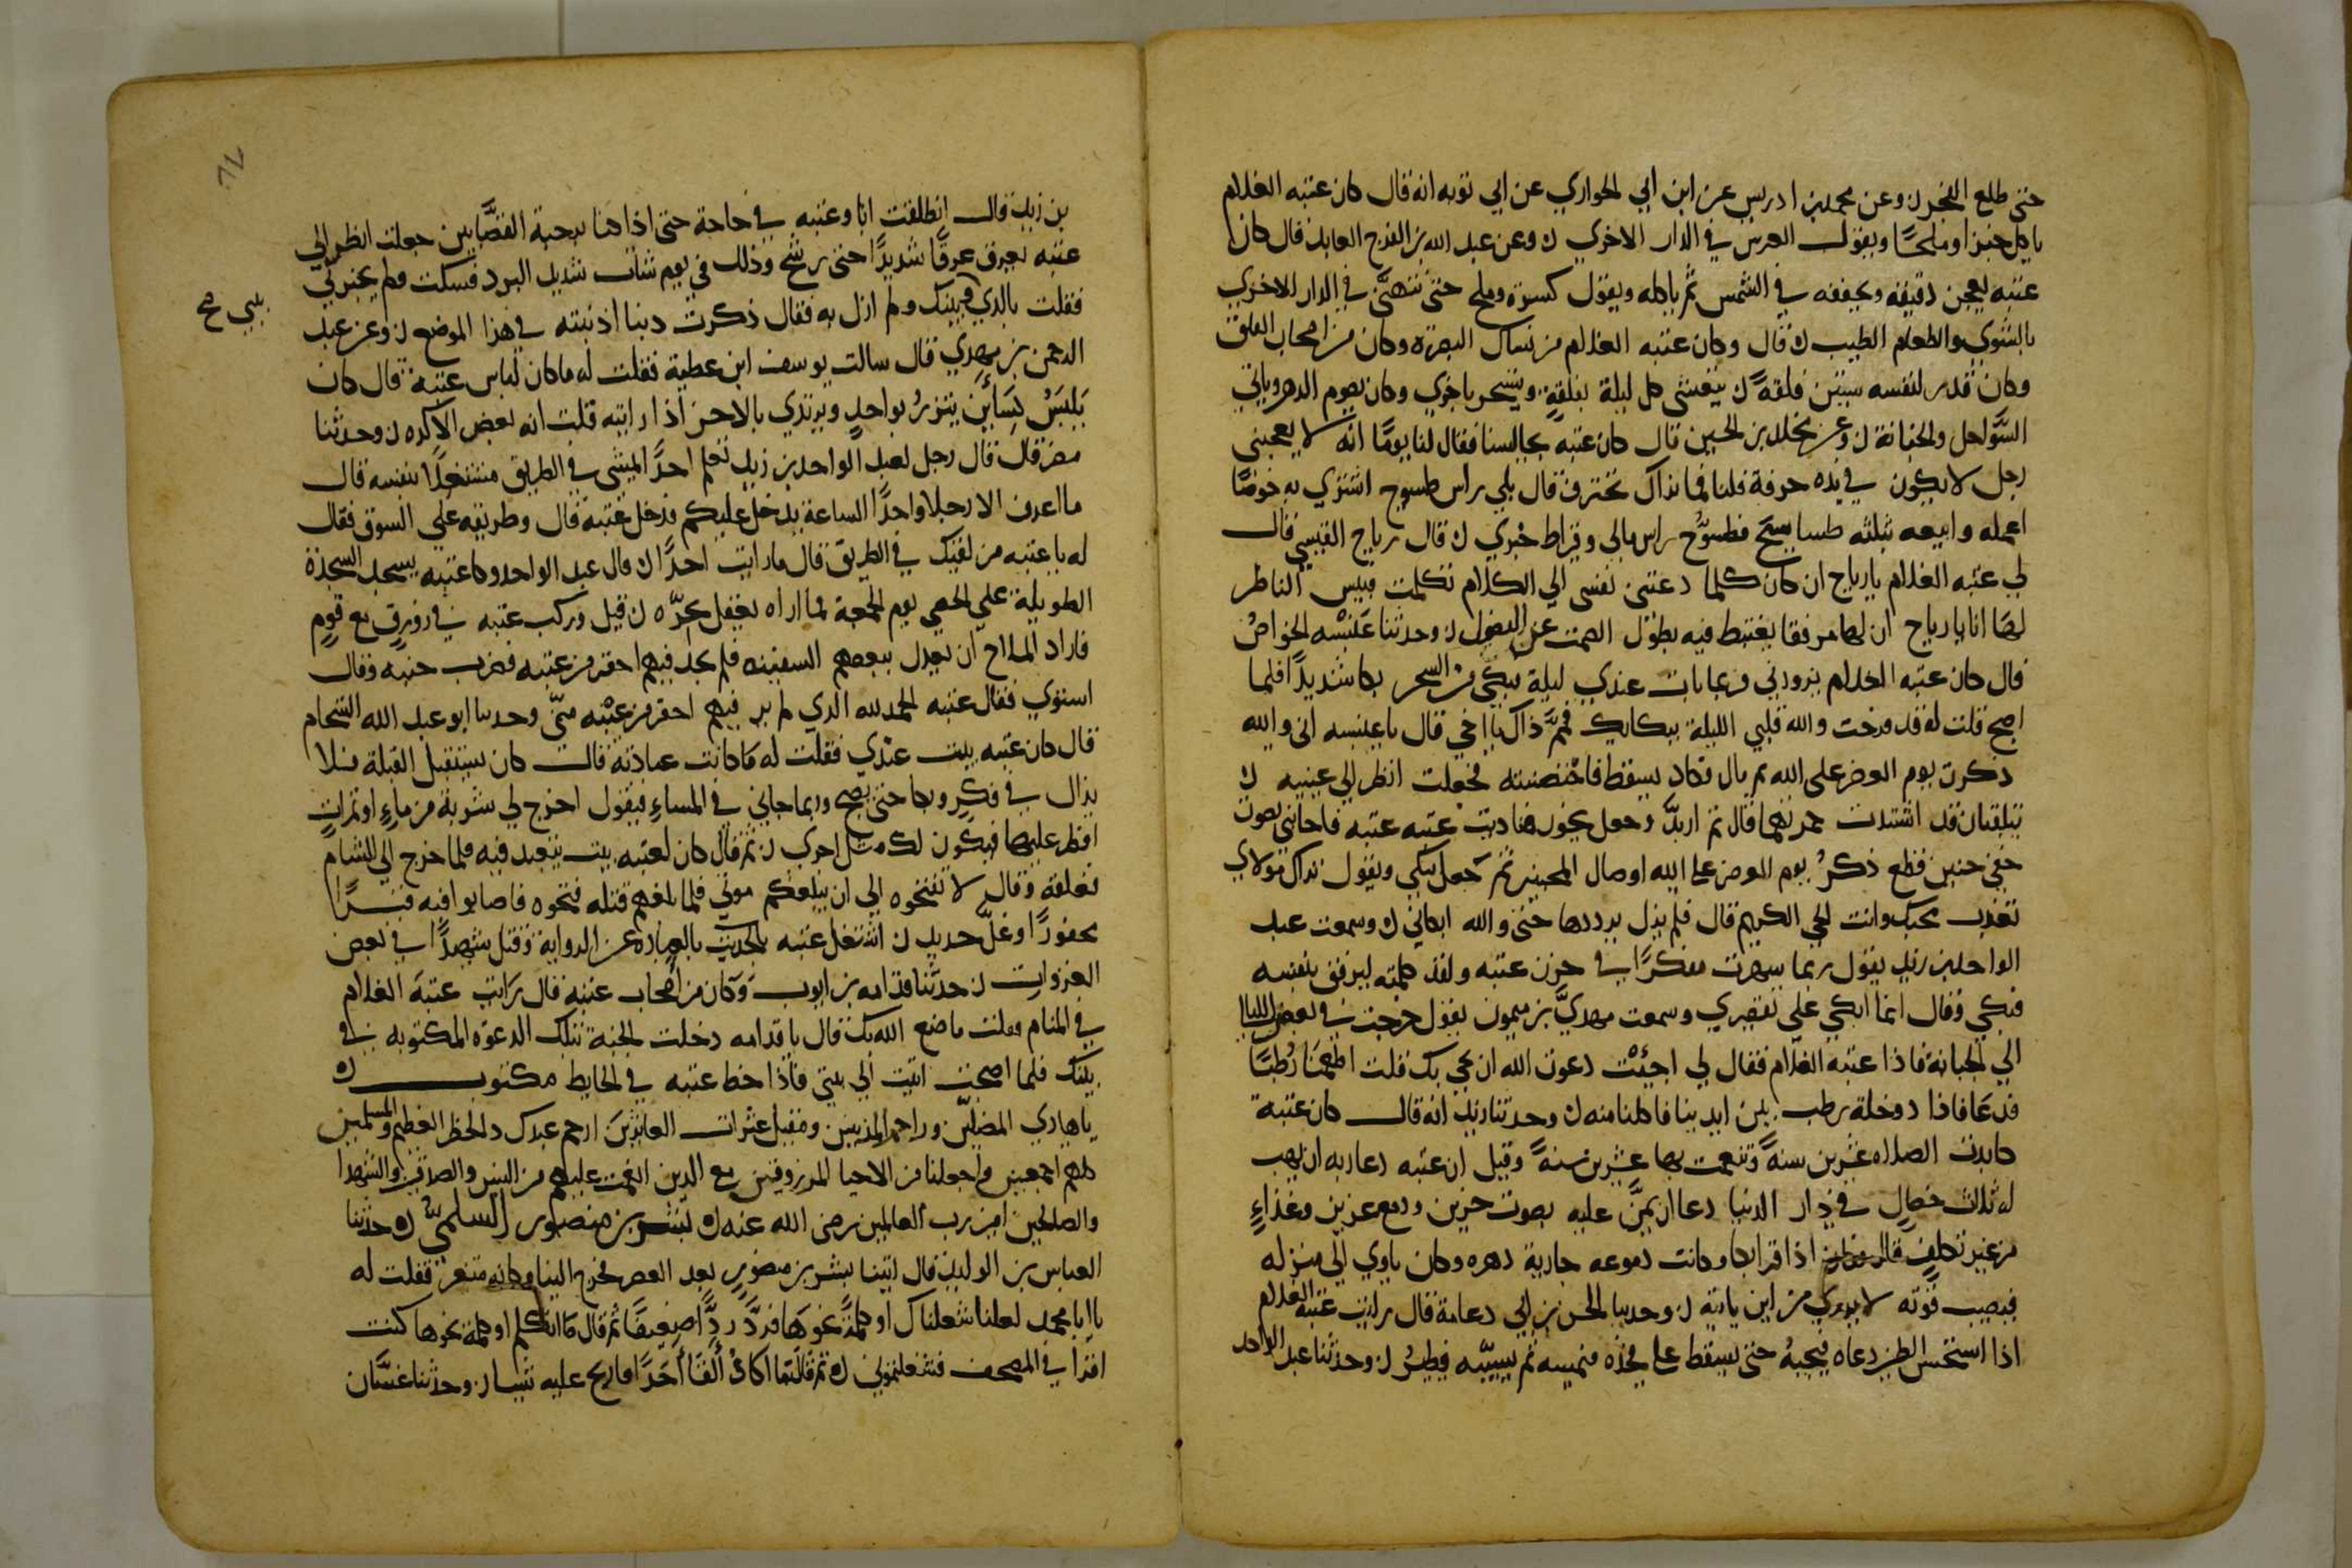 حتى طلع الفجر ن وعن محمد بن ادريس عن ابن ابي الحواري عن ابي توبه انه قال كان عتبه الغلام
ياكل خبزا وملحًا ويقول العرس في الدار الاخري ن وعن عبد الله بن الفرج العابد قال كان
عتبه يعجن دقيقه ويجففه في الشمس ثم ياكله ويقول كسرة وملح حتى نتهنّى في الدار الاخري
بالشوي والطعام الطيب ن قال وكان عتبه الغلام من نساك البصرة وكان من اصحاب الفلق
وكان قدر لنفسه ستين فلقةً ن يتعشى كل ليلة بفلقةٍ ويتسحر باخري وكان يصوم الدهر وياتي
السّواحل والجبانة ن وعن مخلد بن الحسين قال كان عتبه يجالسنا فقال لنا يومًا انّه لا يعجبني
رجل لا يكون في يده حرفة قلنا فما نراك تحترف قال بلي راس طسوج اشتري به خوصًا
اعمله وابيعه بثلثه طساسيج فطسوّج راس مالي وقيراط خبزي ن قال رياح القيسي قال
لي عتبه الغلام يارياح ان كان كلما دعتني نفسي الي الكلام تكلمت فبيس الناظر
لها انا يا رياح ان لها موقفا يغتبط فيه بطول الصمت عن الفضول ن وحدثنا عنبسه الخواصُ
قال كان عتبه الغلام يزورني فربما بات عندي ليلة فبكي من السحر بكا شديدًا فلما
اصبح قلت له قد فزعت والله قلبي الليلة ببكايك فممّ ذاك يا اخي قال يا عنبسه اني والله
ذكرت يوم العرض على الله ثم مال فكاد يسقط فاحتضنته فجعلت انظر الي عينيه ن
يتقلبان قد اشتدت حمرتهما قال ثم ازبدّ وجعل يخور فناديت عتبه عتبه فاجابني بصوت
خفي حنين قطع ذكرُ يوم العرض على الله اوصال المحبين ثم جعل يبكي ويقول تراك مولاي
تعذب محبك وانت الحي الكريم قال فلم يزل يرددها حتى والله ابكاني ن وسمعت عبد
الواحد بن زيد يقول ربما سهرت مفكرًا في حزن عتبه ولقد كلمته ليرفق بنفسه
فبكي وقال انما ابكي على تقصيري وسمعت مهديَّ بن ميمون يقول خرجت في بعض الليالي
الي الجبانة فاذا عتبه الغلام فقال لي اجيئت دعوت الله ان يجي بك فقلت اطعمنا رُطبًا
فدعا فاذا دوخلة رطب بين ايدينا فاكلنا منه ن وحدثنا زيد انه قال كان عتبة
كابدت الصلاه عشرين سنةً وتنعمت بها عشرين سنةً وقيل ان عتبه دعا ربه ان يهب
له ثلاث خصالٍ في دار الدنيا دعا ان يمنَّ عليه بصوت حزين ودمع غزير وغذاءٍ
من غير تكلفٍ قال اذا قرا بكا وكانت دموعه جارية دهره وكان ياوي الي منزله
فيصيب قوته لا يدري من اين ياتيه ن وحدثنا الحسن بن ابي دعامة قال رايت عتبه الغلام
اذا استحسن الطير دعاه فيجيبهُ حتى يسقط على فخذه فيمسه ثم يسيّبه فيطيرُ ن وحدثنا عبد الواحد
بن زيد قال انطلقت انا وعتبه في حاجة حتى اذا كنا برحبة القصّابين جعلت انظر الي
عتبه يعرق عرقًا شديدًا حتى رشح وذلك في يوم شات شديد البرد فسكت ولم يخبرني
فقلت بالذي بينك ولم ازل به فقال ذكرت ذنبا اذنبته في هذا الموضع ن وعن عبد
بيني صح
الرحمن بن مهدي قال سالت يوسف ابن عطية فقلت له ما كان لباس عتبه قال كان
يَلبَسُ كِسَاَيْنِ يتزرُ بواحدٍ ويرتدي بالاخر اذا رايته قلت انه بعض الاكره ن وحدثنا
مضر قال قال رجل لعبد الواحد بن زيد تعلم احدًا يمشي في الطريق مشتغلًا بنفسه قال
ما اعرف الا رجلا واحدًا الساعة يدخل عليكم فدخل عتبه قال وطريقه على السوق فقال
له يا عتبه من لقيك في الطريق قال ما رايت احدًا ن قال عبد الواحد وكا عتبه يسجد السجدة
الطويلة على الحصي يوم الجمعة فما اراه يغفل بحرّه ن قيل وركب عتبه في زورقٍ مع قومٍ
فاراد الملاح ان يعدل ببعضهم السفينه فلم يجد فيهم احقر من عتبه فضرب جنبه وقال
استوي فقال عتبه الحمد لله الذي لم ير فيهم احقر من عتبه منّي وحدثنا ابو عبد الله الشحام
قال كان عتبه يبيت عندي فقلت له ما كانت عبادته قال كان يستقبل القبلة فلا
يزال في فكرٍ وبكا حتى يصبح وربما جاني في المساءِ فيقول اخرج لي شربة من ماءٍ او تمراتٍ
افطر عليها فيكون لك مثل اجري ن ثم قال كان لعتبه بيت يتعبد فيه فلما خرج الي الشام
غلقه وقال لا تفتحوه الي ان يبلغكم موتي فلما بلغهم قتله فتحوه فاصابوا فيه قبرًا
محفورًا وغلّ حديد ن اشتغل عتبه بالعباده عن الرواية وقتل شهيدًا في بعض
الغزوات ن حدثنا قدامه بن ايوب وكان من اصحاب عتبه قال رايت عتبه الغلام
في المنام فقلت ما صنع الله بك قال يا قدامه دخلت الجنة بتلك الدعوة المكتوبه في
بيتك فلما اصبحت اتيت الي بيتي فاذا خط عتبه في الحايط مكتوب ن
يا هادي المضلين وراحم المذنبين ومقيل عثرات العاثرين ارحم عبدك ذا الخطر العظيم والمسلمين
كلهم اجمعين واجعلنا من الاحيا المرزوقين مع الذين انعمت عليهم من النبيين والصديقين والشهدا
والصالحين امين رب العالمين رضي الله عنه ن بشر بن منصور السلميُّ ن حدثنا
العباس بن الوليد قال اتينا بشر بن منصور بعد العصر فخرج الينا وكانه متغير فقلت له
يا ابا محمد لعلنا شغلناك او كلمةً نحوها فردَّ ردًّا ضعيفًا ثم قال ما اكتمكم او كلمة نحوها كنت
اقرا في المصحف فشغلتموني ن ثم قال ما اكادُ أَلقَا أَحَدًا فاربح عليه شيا ن وحدثنا غسّان